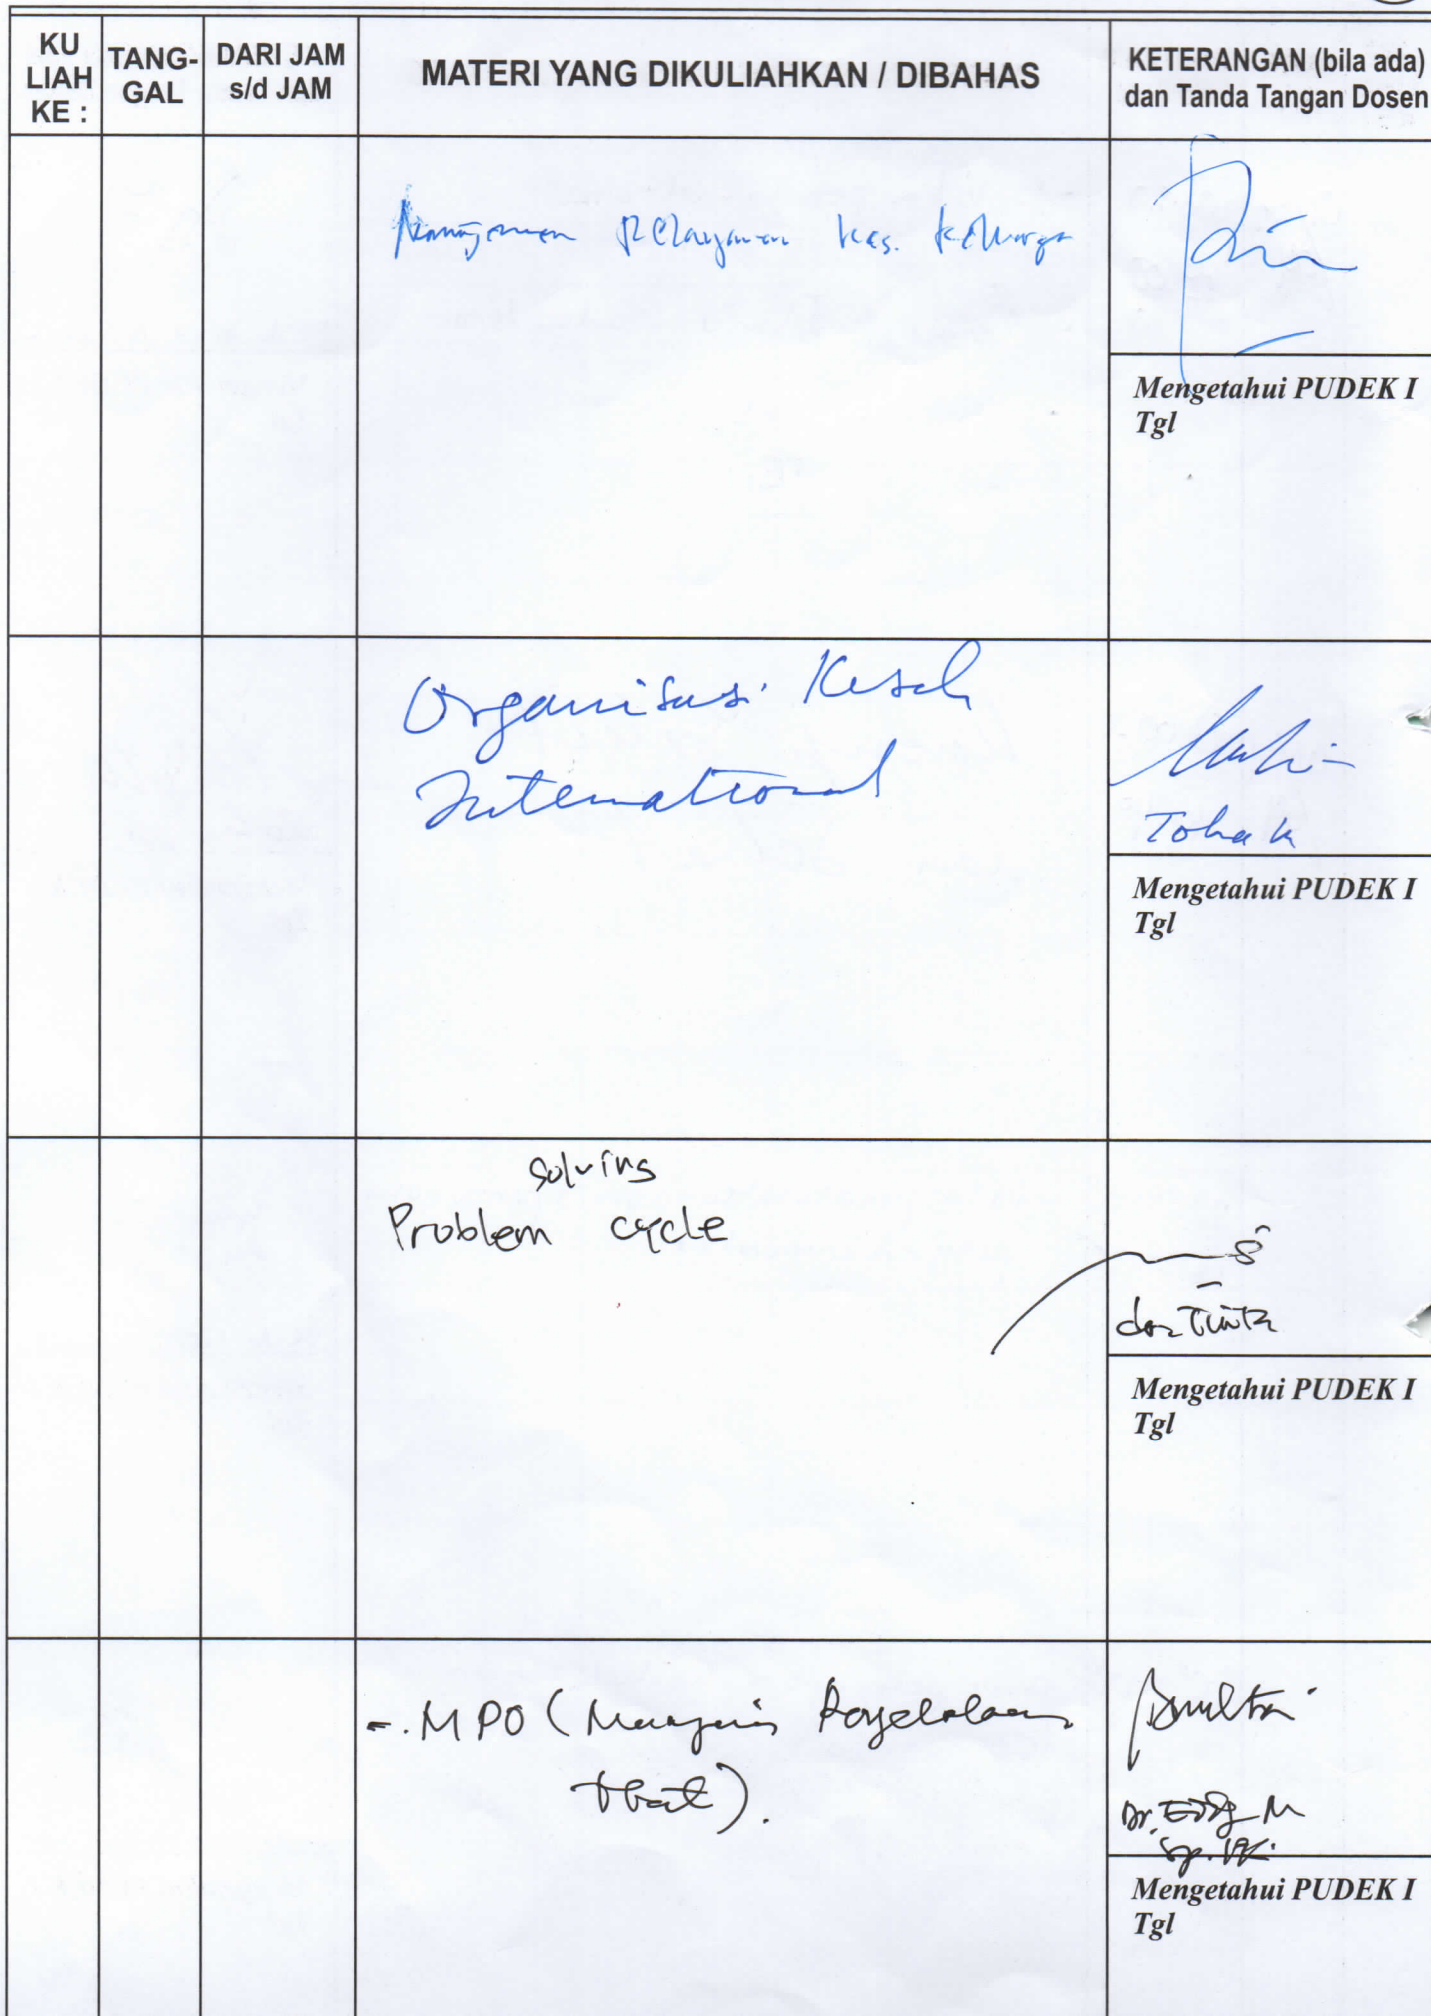 KU LIAH KE :
TANG- GAL
DARI JAM s/d JAM
MATERI YANG DIKULIAHKAN / DIBAHAS
KETERANGAN (bila ada) dan Tanda Tangan Dosen
Manajemen pelayanan kes. keluarga
Mengetahui PUDEK I
Tgl
Organisasi Keseh
International
Toha
Mengetahui PUDEK I
Tgl
solving
Problem cycle
Mengetahui PUDEK I
Tgl
-. MPO (Manajemen Pengelolaan
Obat).
Dr.
Mengetahui PUDEK I
Tgl